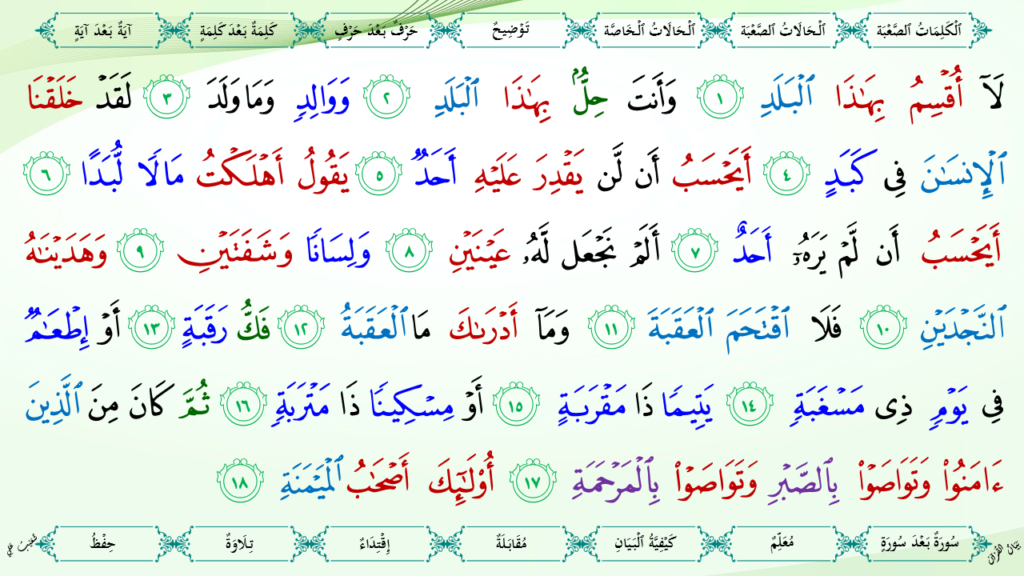 اَلْكَلِمَاتُ الصَّعْبَة اَلْحَالَاتُ الصَّعْبَة اَلْحَالَاتُ الْخَاصَّة تَوْضِيحٌ حَرْفٌ بَعْدَ حَرْفٍ كَلِمَةٌ بَعْدَ كَلِمَةٍ آيَةٌ بَعْدَ آيَةٍ
لَآ أُقۡسِمُ بِهَٰذَا ٱلۡبَلَدِ ١ وَأَنتَ حِلُّۢ بِهَٰذَا ٱلۡبَلَدِ ٢ وَوَالِدٖ وَمَا وَلَدَ ٣ لَقَدۡ خَلَقۡنَا
ٱلۡإِنسَٰنَ فِي كَبَدٍ ٤ أَيَحۡسَبُ أَن لَّن يَقۡدِرَ عَلَيۡهِ أَحَدٞ ٥ يَقُولُ أَهۡلَكۡتُ مَالٗا لُّبَدًا ٦
أَيَحۡسَبُ أَن لَّمۡ يَرَهُۥٓ أَحَدٌ ٧ أَلَمۡ نَجۡعَل لَّهُۥ عَيۡنَيۡنِ ٨ وَلِسَانٗا وَشَفَتَيۡنِ ٩ وَهَدَيۡنَٰهُ
ٱلنَّجۡدَيۡنِ ١٠ فَلَا ٱقۡتَحَمَ ٱلۡعَقَبَةَ ١١ وَمَآ أَدۡرَىٰكَ مَا ٱلۡعَقَبَةُ ١٢ فَكُّ رَقَبَةٍ ١٣ أَوۡ إِطۡعَٰمٞ
فِي يَوۡمٖ ذِي مَسۡغَبَةٖ ١٤ يَتِيمٗا ذَا مَقۡرَبَةٍ ١٥ أَوۡ مِسۡكِينٗا ذَا مَتۡرَبَةٖ ١٦ ثُمَّ كَانَ مِنَ ٱلَّذِينَ
ءَامَنُواْ وَتَوَاصَوۡاْ بِٱلصَّبۡرِ وَتَوَاصَوۡاْ بِٱلۡمَرۡحَمَةِ ١٧ أُوْلَٰٓئِكَ أَصۡحَٰبُ ٱلۡمَيۡمَنَةِ ١٨
سُورَةٌ بَعْدَ سُورَةٍ مُعَلِّمٌ كَيْفِيَّةُ الْبَيَانِ مُقَابَلَةٌ إِقْتِدَاءٌ تِلَاوَةٌ حِفْظٌ